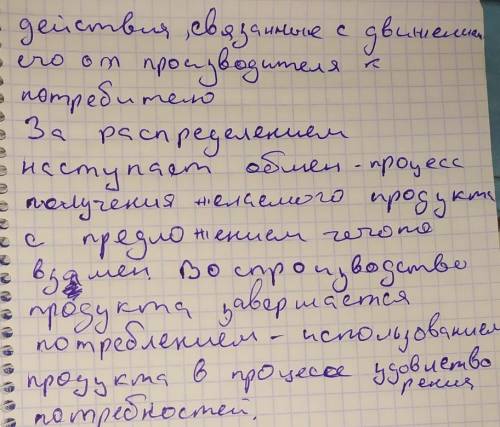 действия, связанные с движением
его от производителя к
потребителю
За распределением
наступает обмен - процесс
получения желаемого продукта
с предложением чегото
взамен. Воспроизводство
продукта завершается
потреблением - использованием
продукта в процессе удовлетво
рения
потребностей.